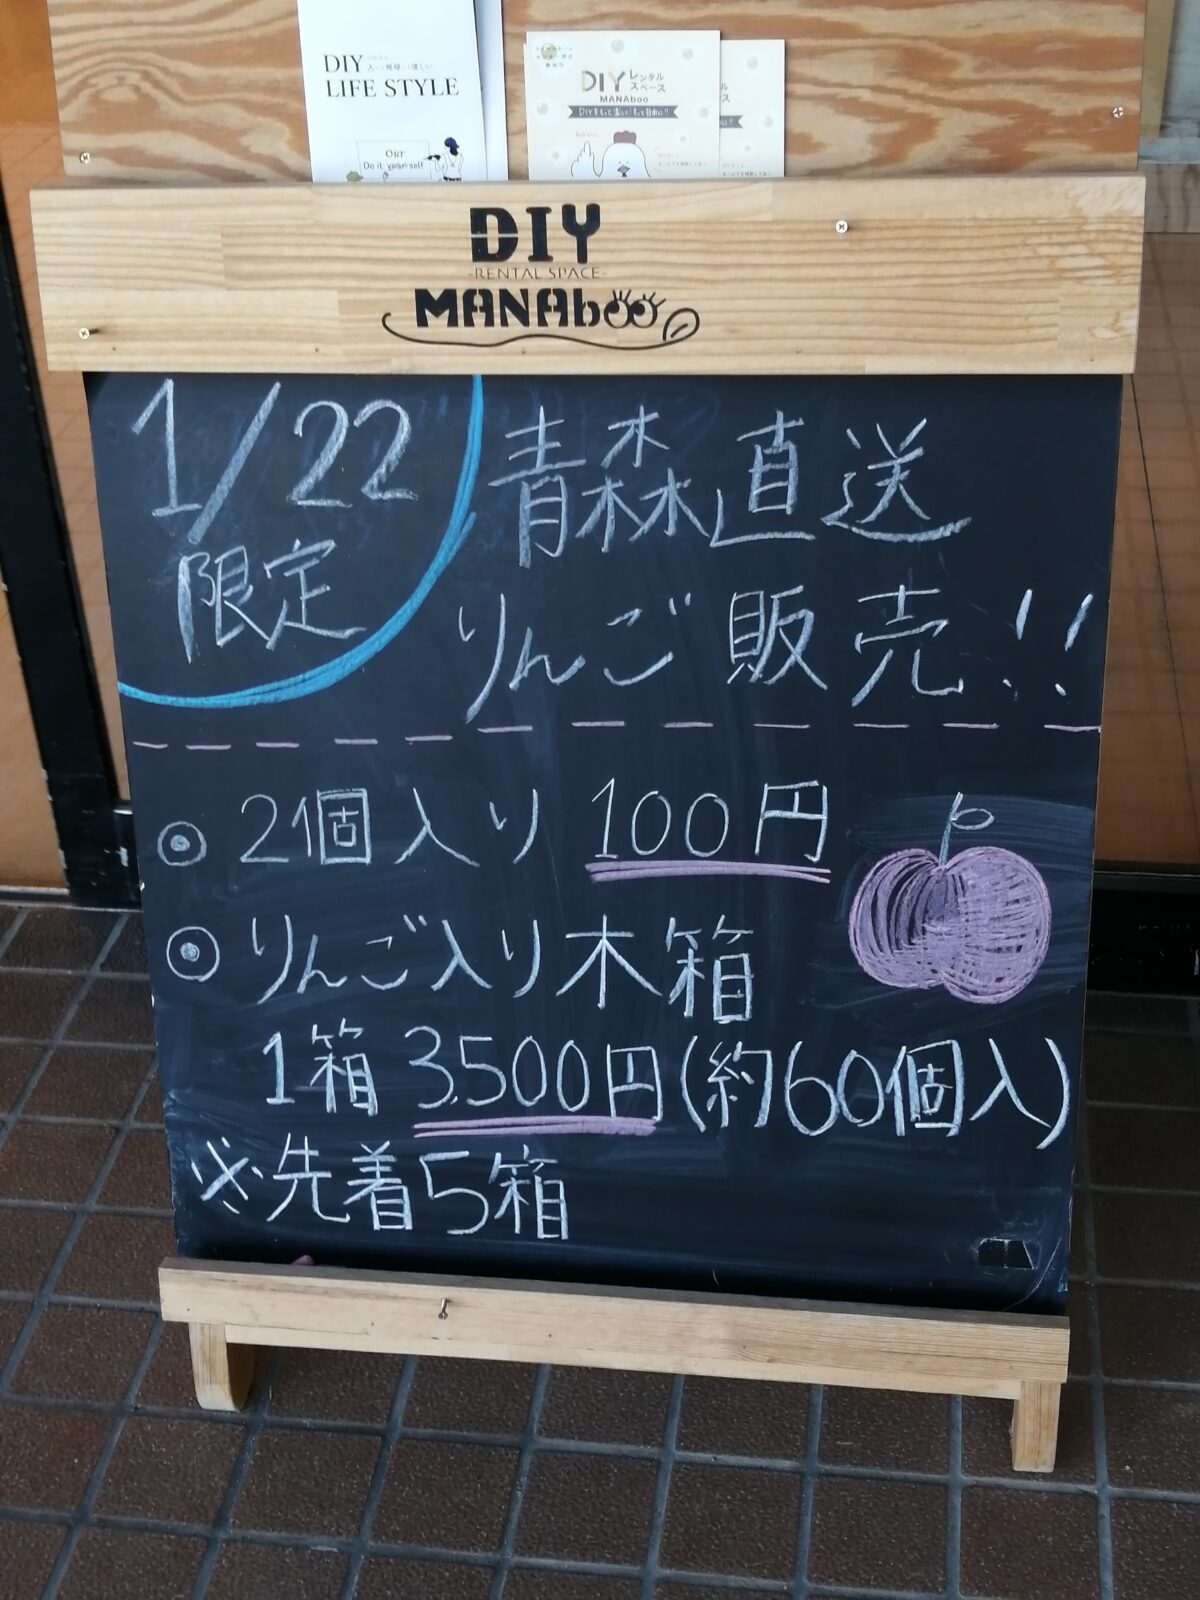 DIY
LIFE STYLE
our
Do it yourself
DIY レンタル
スペース
MANAboo
DIY
-RENTAL SPACE-
MANAboo
1/22
限定
青森直送
りんご販売!!
◎ 2個入り 100円
◎ りんご入り木箱
1箱 3,500円(約60個入)
※先着5箱